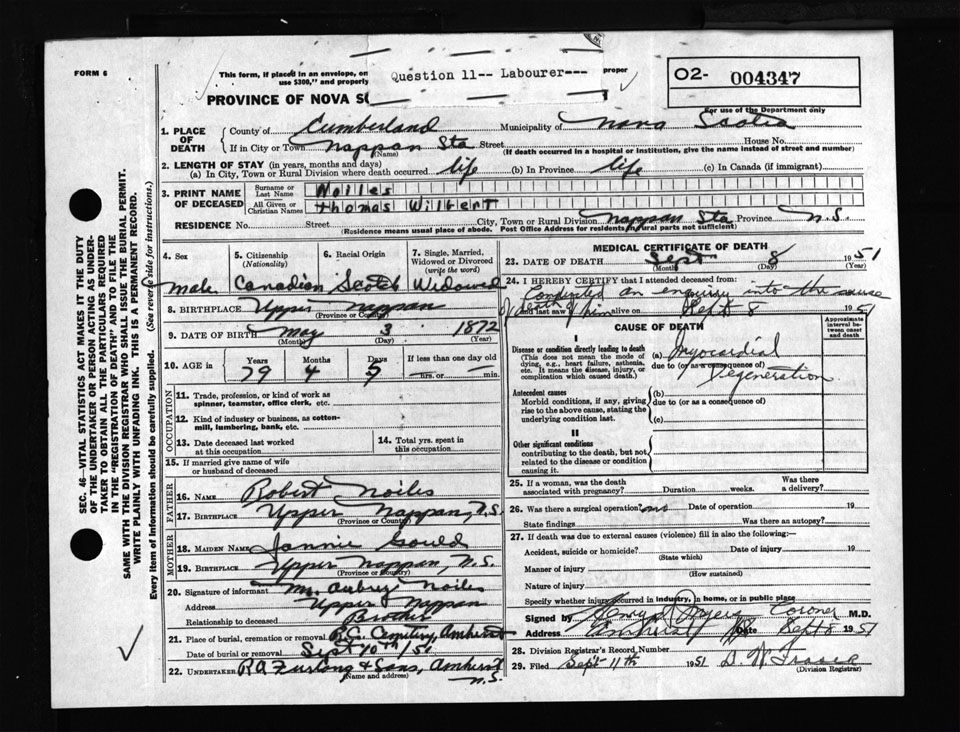 FORM 6
This form, if placed in an envelope, on
use $300," and properly
Question 11-- Labourer---
proper
PROVINCE OF NOVA S
O2- 004347
For use of the Department only
1. PLACE OF DEATH
County of Cumberland Municipality of Nova Scotia
If in City or Town Nappan Sta Street House No.
(Name) (If death occurred in a hospital or institution, give the name instead of street and number)
2. LENGTH OF STAY (in years, months and days)
(a) In City, Town or Rural Division where death occurred life (b) In Province life (c) In Canada (if immigrant)
3. PRINT NAME OF DECEASED
Surname or Last Name Noiles
All Given or Christian Names Thomas Wilbert
RESIDENCE No. Street City, Town or Rural Division Nappan Sta Province N.S.
(Residence means usual place of abode. Post Office Address for residents in rural parts not sufficient)
4. Sex 5. Citizenship (Nationality) 6. Racial Origin 7. Single, Married, Widowed or Divorced (write the word)
Male Canadian Scotch Widowed
8. BIRTHPLACE Upper Nappan
(Province or Country)
9. DATE OF BIRTH May 3 1872
(Month) (Day) (Year)
10. AGE in Years Months Days If less than one day old
79 4 5 hrs. or min.
OCCUPATION
11. Trade, profession, or kind of work as spinner, teamster, office clerk, etc.
12. Kind of industry or business, as cotton-mill, lumbering, bank, etc.
13. Date deceased last worked at this occupation
14. Total yrs. spent in this occupation
15. If married give name of wife or husband of deceased
FATHER
16. NAME Robert Noiles
17. BIRTHPLACE Upper Nappan, N.S.
(Province or Country)
MOTHER
18. MAIDEN NAME Jannie Gould
19. BIRTHPLACE Upper Nappan, N.S.
(Province or Country)
20. Signature of informant Mr. Aubrey Noiles
Address Upper Nappan
Relationship to deceased Brother
21. Place of burial, cremation or removal R.C. Cemetery, Amherst
Date of burial or removal Sept 10th/51
22. UNDERTAKER R.A. Furlong & Sons, Amherst
(Name and address) N.S.
MEDICAL CERTIFICATE OF DEATH
23. DATE OF DEATH Sept 8 1951
(Month) (Day) (Year)
24. I HEREBY CERTIFY that I attended deceased from:
Conducted an enquiry into the cause
of death of him
and last saw h alive on Sept 8 1951
CAUSE OF DEATH
Approximate interval between onset and death
I
Disease or condition directly leading to death
(This does not mean the mode of dying, e.g., heart failure, asthenia, etc. It means the disease, injury, or complication which caused death.)
(a) Myocardial
due to (or as a consequence of)
Degeneration
Antecedent causes
Morbid conditions, if any, giving rise to the above cause, stating the underlying condition last.
(b)
due to (or as a consequence of)
(c)
II
Other significant conditions
contributing to the death, but not related to the disease or condition causing it.
25. If a woman, was the death associated with pregnancy? Duration weeks. Was there a delivery?
26. Was there a surgical operation? no Date of operation 19
State findings Was there an autopsy?
27. If death was due to external causes (violence) fill in also the following:—
Accident, suicide or homicide? Date of injury 19
(State which)
Manner of injury
(How sustained)
Nature of injury
Specify whether injury occurred in industry, in home, or in public place
Signed by Coroner M.D.
Address Amherst Date Sept 8 1951
28. Division Registrar's Record Number
29. Filed Sept 11th 1951 D. W. Fraser
(Division Registrar)
SEC. 46—VITAL STATISTICS ACT MAKES IT THE DUTY
OF THE UNDERTAKER OR PERSON ACTING AS UNDER-
TAKER TO OBTAIN ALL THE PARTICULARS REQUIRED
IN THE "REGISTRATION OF DEATH" AND TO FILE THE
SAME WITH THE DIVISION REGISTRAR WHO SHALL ISSUE THE BURIAL PERMIT.
WRITE PLAINLY WITH UNFADING INK. THIS IS A PERMANENT RECORD.
Every item of information should be carefully supplied. (See reverse side for instructions.)